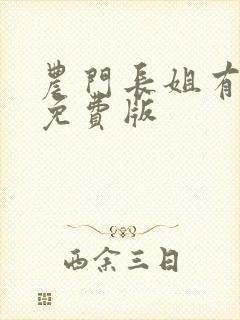 農門長姐有
免費版
西余三日